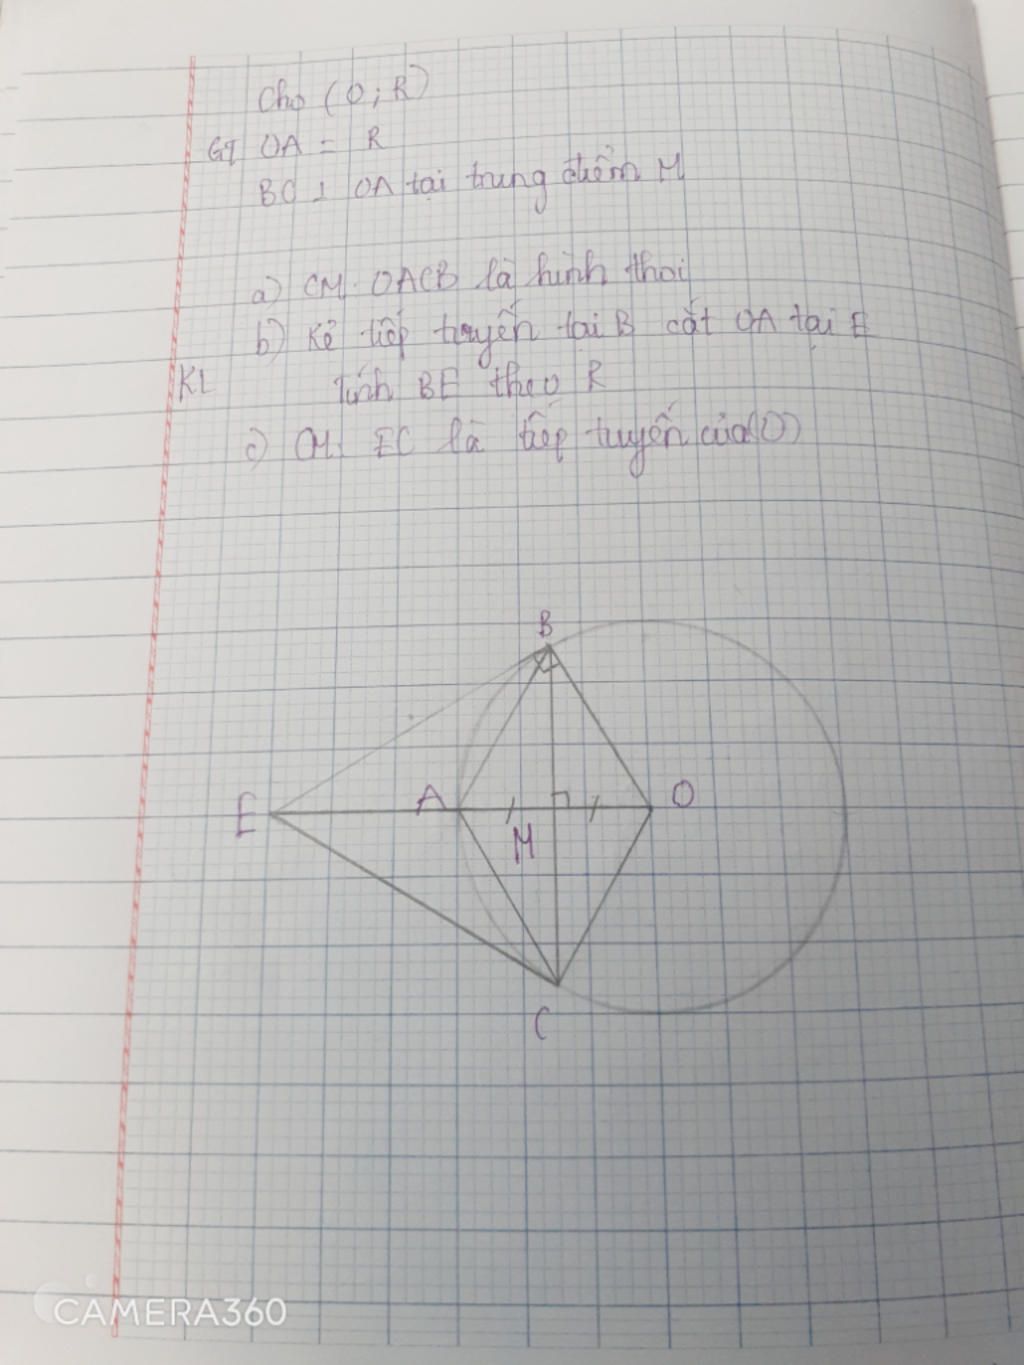 Cho (O; R)
GT OA = R
BC ⊥ OA tại trung điểm M
a) CM. OACB là hình thoi
b) Kẻ tiếp tuyến tại B cắt OA tại E
KL Tính BE theo R
c) CM. EC là tiếp tuyến của (O)
B
E A O
M
C
CAMERA360